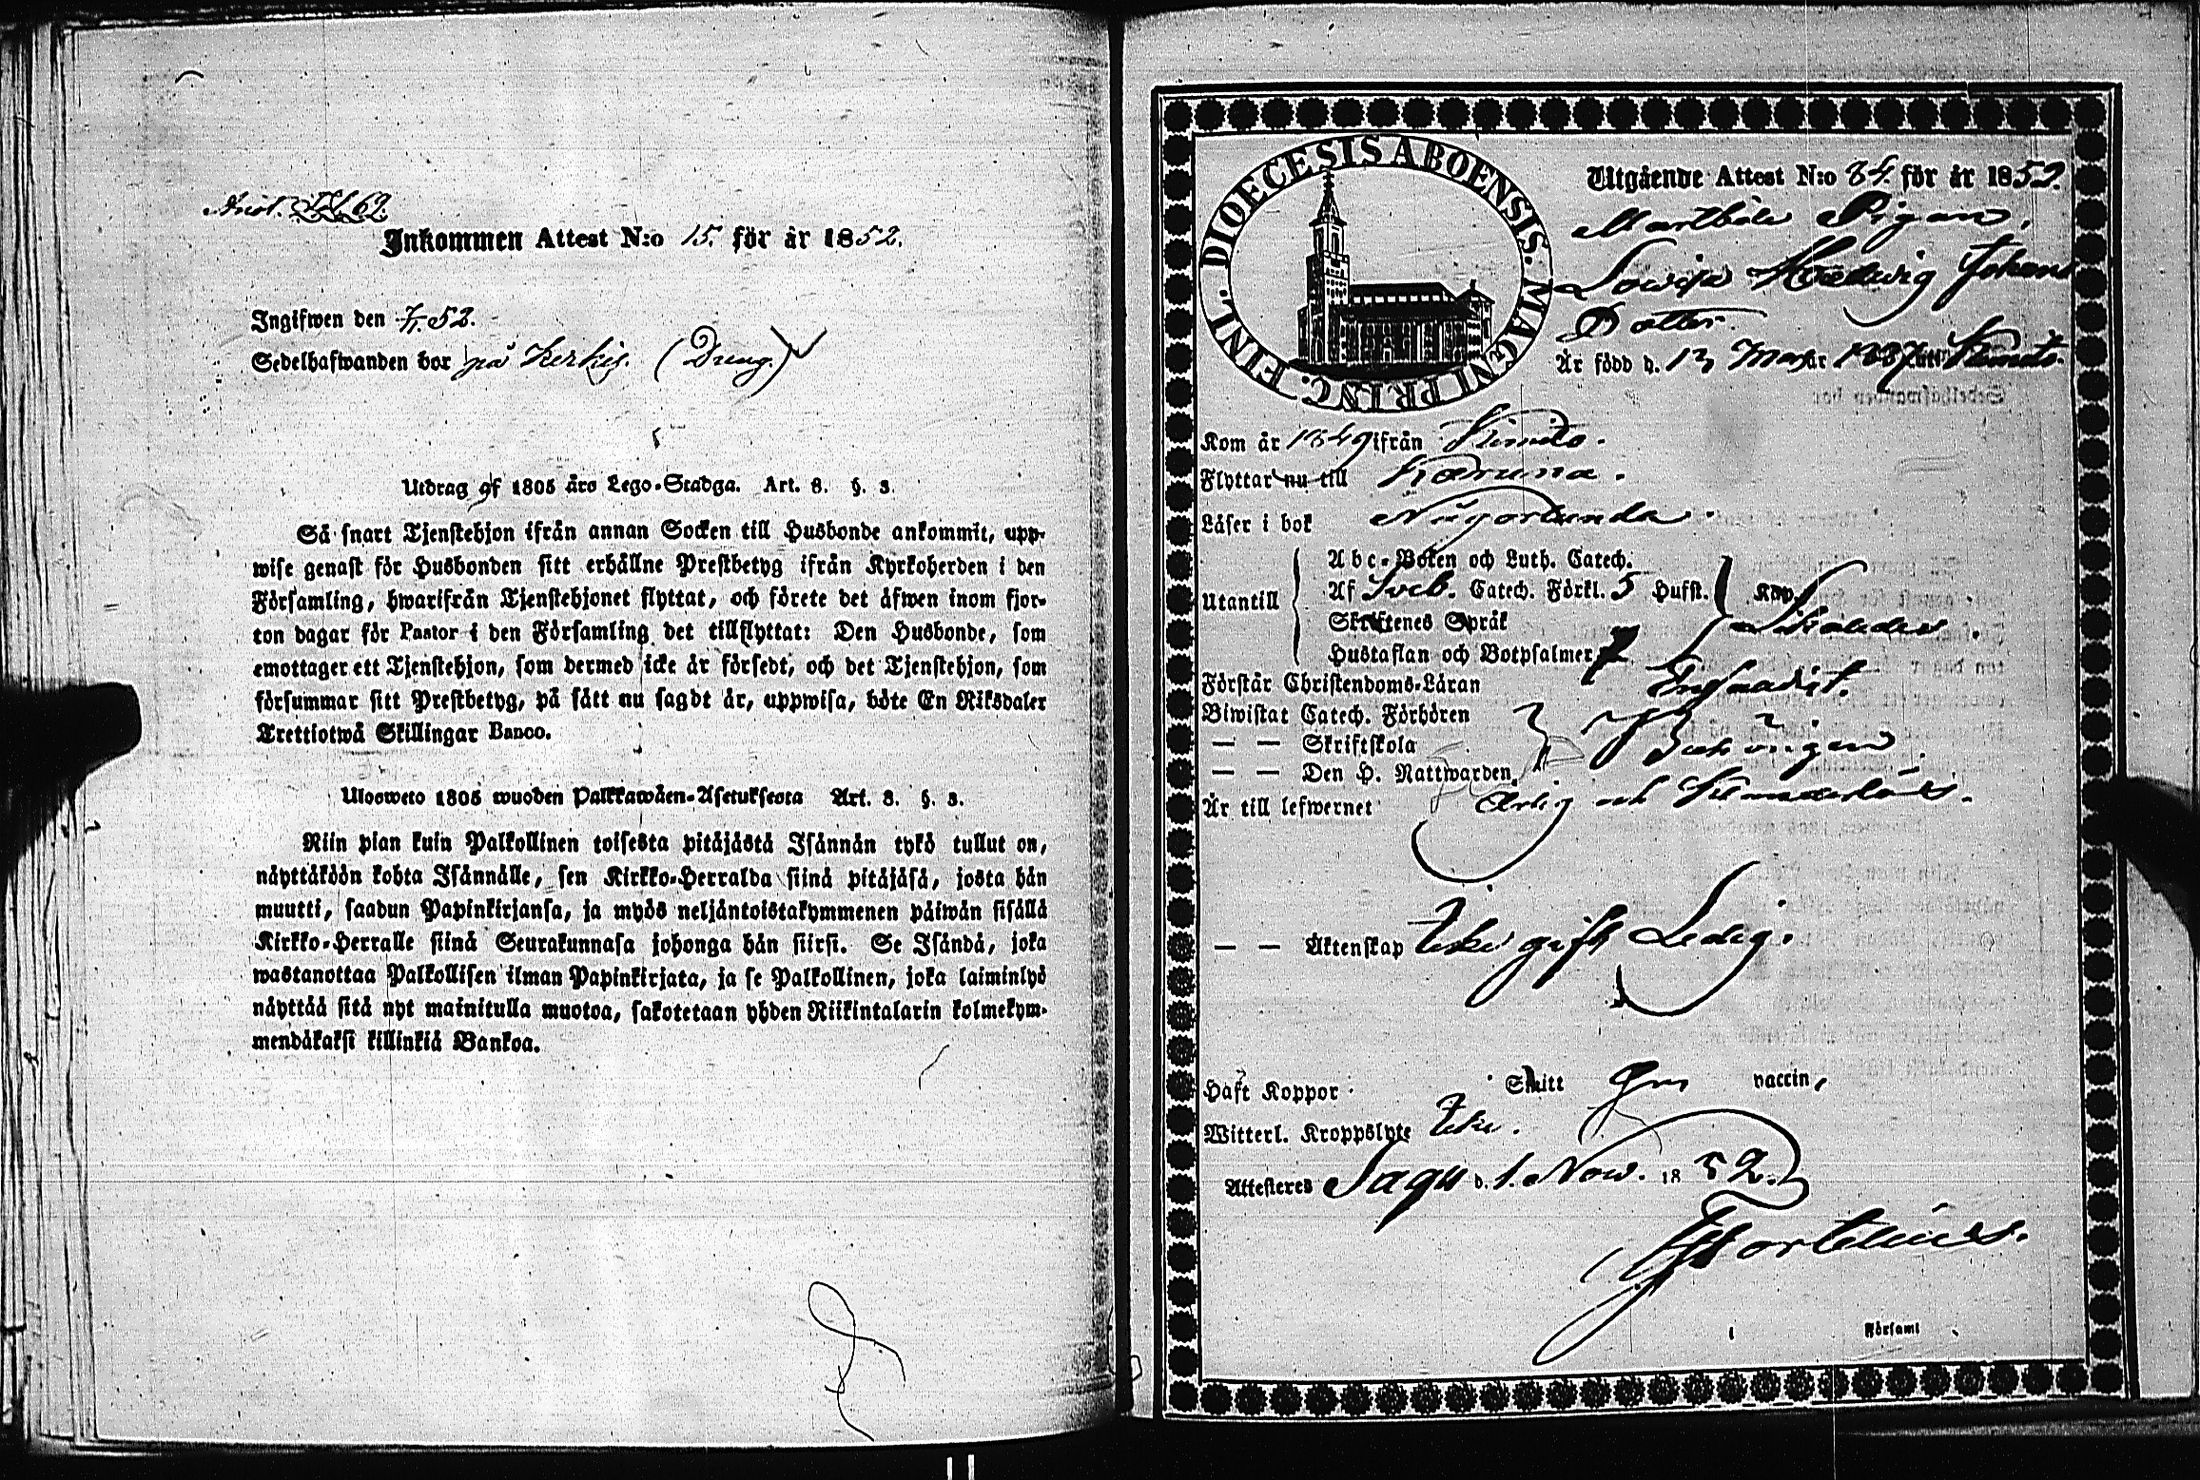 Anot. 62.
Inkommen Attest N:o 15. för år 1852.
Ingifwen den 7/11. 52.
Sedelhafwanden bor på Kerkis. (Dreng.)
Utdrag af 1805 års Lego-Stadga. Art. 8. §. 3.
Så snart Tjenstehjon ifrån annan Socken till Husbonde ankommit, upp-
wise genast för Husbonden sitt erhållne Prestbetyg ifrån Kyrkoherden i den
Församling, hwarifrån Tjenstehjonet flyttat, och förete det äfwen inom fjor-
ton dagar för Pastor i den Församling det tillflyttat: Den Husbonde, som
emottager ett Tjenstehjon, som dermed icke är försedt, och det Tjenstehjon, som
försummar sitt Prestbetyg, på sätt nu sagdt är, uppwisa, böte En Riksdaler
Trettiotwå Skillingar Banco.
Ulosweto 1805 wuoden Palkkawäen-Asetuksesta Art. 8. §. 3.
Niin pian kuin Palkollinen toisesta pitäjästä Isännän tykö tullut on,
näyttäköön kohta Isännälle, sen Kirkko-Herralda siinä pitäjäsä, josta hän
muutti, saadun Papinkirjansa, ja myös neljäntoistakymmenen päiwän sisällä
Kirkko-Herralle siinä Seurakunnasa johonga hän siirsi. Se Isändä, joka
wastanottaa Palkollisen ilman Papinkirjata, ja se Palkollinen, joka laiminlyö
näyttää sitä nyt mainitulla muotoa, sakotetaan yhden Riikintalarin kolmekym-
mendäkaksi killinkiä Bankoa.
DIOECESIS ABOENSIS. MAGNI PRINC. FINL.
Utgående Attest N:o 84. för år 1852.
Pigan,
Lovisa Hedwig Johans
Dotter.
Är född d. 13 Mars år 1837 uti Kimito.
Kom år 1849 ifrån Kimito.
Flyttar nu till Karuna.
Läser i bok Någorlunda.
Abc-Boken och Luth. Catech.
Utantill Af Sveb. Catech. Förkl. 5 Hufst. Kap.
Skriftenes Språk
Hustaflan och Botpsalmer
Förstår Christendoms-Läran Enfaldigt.
Biwistat Catech. Förhören
— — Skriftskola Behörigen.
— — Den H. Nattwarden.
Är till lefwernet Ärlig och Klanderlös.
— — Äktenskap Icke gift Ledig.
Haft Koppor Skitt Gm vaccin,
Witterl. Kroppslyte Icke.
Attesteres Sagu d. 1. Nov. 1852.
i Församl